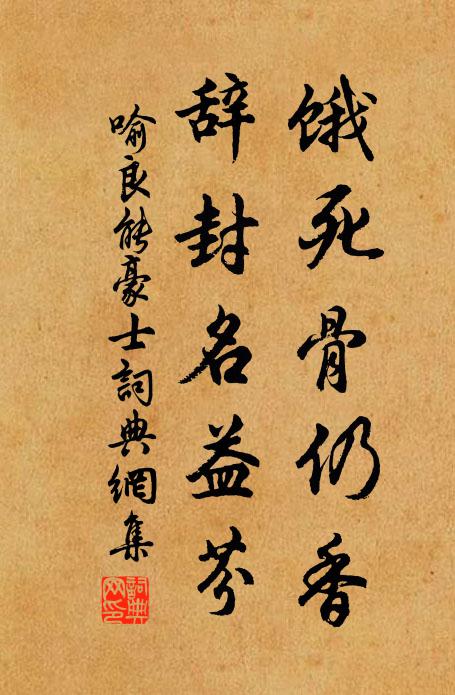 饿死骨仍香
辞封名益芬
喻良能豪士詞典網集
詞典网印